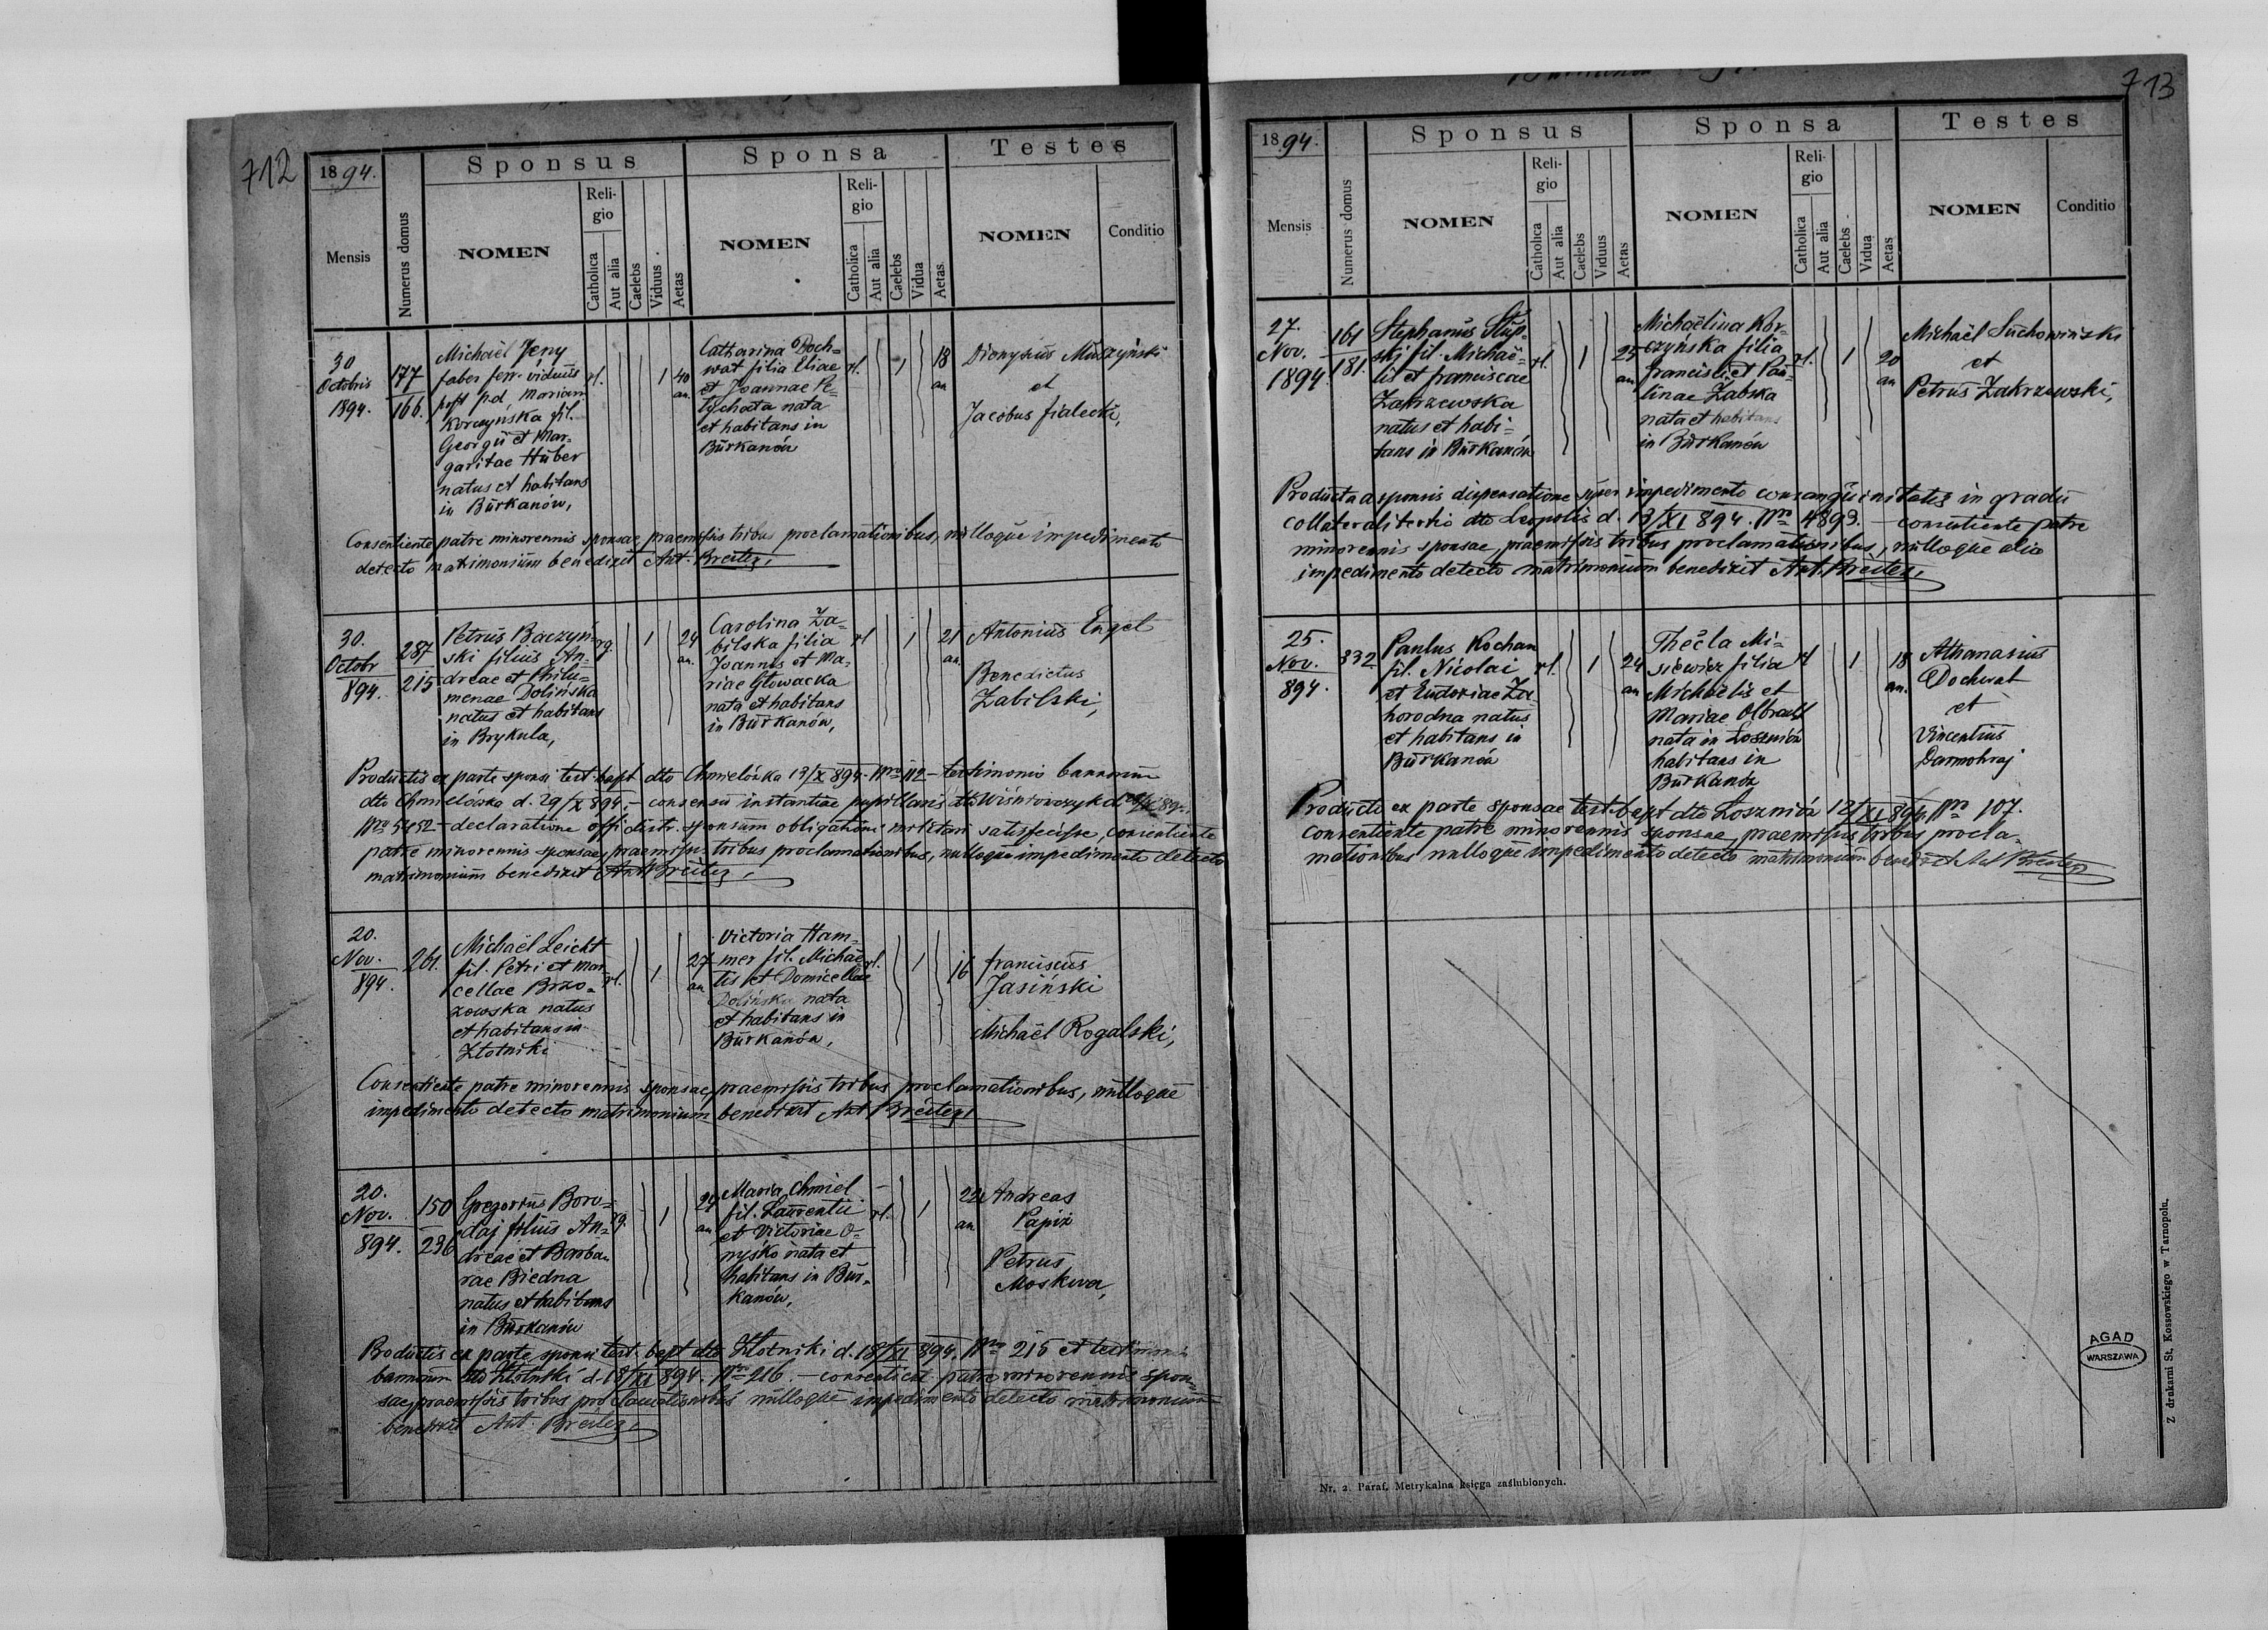 712
1894.
Sponsus
Sponsa
Testes
Mensis
Numerus domus
NOMEN
Religio
Catholica
Aut alia
Caelebs
Viduus
Aetas
NOMEN
Religio
Catholica
Aut alia
Caelebs
Vidua
Aetas
NOMEN
Conditio
30
Octobris
1894.
177
166.
Michaël Jeny
faber ferr. viduus
post p.d. Mariam
Korczyńska fil.
Georgii et Mar-
garitae Huber
natus et habitans
in Burkanów,
rl.
1
40
an.
Catharina Doch=
wat filia Eliae
et Joannae Pe-
tychata nata
et habitans in
Burkanów
rl.
1
18
an
Dionysius Muszyński
et
Jacobus fialecki,
Consentiente patre minorennis sponsae, praemissis tribus proclamationibus, nulloque impedimento
detecto matrimonium benedixit Ant. Breiter,
30.
Octobr
894.
287
215
Petrus Baczyń-
ski filius An-
dreae et Philu=
menae Dolińska
natus et habitans
in Brykula,
rg.
1
24
an.
Carolina Za-
bilska filia
Joannis et Ma-
riae Głowacka
nata et habitans
in Burkanów,
rl
1
21
an.
Antonius Engel
Benedictus
Zabilski,
Productis ex parte sponsi test. bapt. dto Chmielówka 13/X 894. Nro 112 - testimonio bannorum
dto Chmielówka d. 29/X 894, - consensu instantiae pupillaris dto Wiśniowczyk d.
Nro 5452 - declaratione offi. distr. sponsum obligationi militari satisfecisse, consentiente
patre minorennis sponsae, praemissis tribus proclamationibus, nulloque impedimento detecto
matrimonium benedixit Ant. Breiter,
20.
Nov.
894.
261.
Michaël Leicht
fil. Petri et Mar-
cellae Brzo=
zowska natus
et habitans in
Złotniki
rl.
1
27
an
Victoria Ham=
mer fil. Michaë
lis et Domicellae
Dolińska nata
et habitans in
Burkanów,
rl.
1
16
franciscus
Jasiński
Michaël Rogalski,
Consentiente patre minorennis sponsae, praemissis tribus proclamationibus, nulloque
impedimento detecto matrimonium benedixit Ant. Breiter,
20.
Nov.
894.
150
236
Gregorius Boro-
daj filius An-
dreae et Barba-
rae Biedna
natus et habitans
in Burkanów
rg.
1
29
an
Maria Chmiel
fil. Laurentii
et Victoriae O-
nyśko nata et
habitans in Bur-
kanów,
rl.
1
22
an
Andreas
Papiż
Petrus
Moskwa,
Productis ex parte sponsi test. bapt. dto Złotniki d. 18/XI 894. Nro 215 et testimonio
bannorum dto Złotniki d. 18/XI 894. Nro 216. - consentiente patre minorennis spon=
sae, praemissis tribus proclamationibus nulloque impedimento detecto matrimonium
benedixit Ant. Breiter,
713
1894.
Sponsus
Sponsa
Testes
Mensis
Numerus domus
NOMEN
Religio
Catholica
Aut alia
Caelebs
Viduus
Aetas
NOMEN
Religio
Catholica
Aut alia
Caelebs
Vidua
Aetas
NOMEN
Conditio
27.
Nov.
1894.
161
181.
Stephanus Słup-
ski fil. Michaë=
lis et franciscae
Zakrzewska
natus et habi=
tans in Burkanów
rl.
1
25
an
Michaëlina Kor-
czyńska filia
francisci et Pau-
linae Zabska
nata et habitans
in Burkanów
rl.
1
20
an
Michaël Suchowiński
et
Petrus Zakrzewski,
Producta a sponsis dispensatione super impedimento consanguinitatis in gradu
collaterali tertio dto Leopolis d. 13/XI 894. Nro 4893. - consentiente patre
minorennis sponsae, praemissis tribus proclamationibus, nulloque alio
impedimento detecto matrimonium benedixit Ant. Breiter,
25.
Nov.
894.
332
Paulus Kochan
fil. Nicolai
et Eudoxiae Za-
horodna natus
et habitans in
Burkanów
rl.
1
24
an
Thecla Mi-
siewicz filia
Michaëlis et
Mariae Olbracht
nata in Łoszniów
habitans in
Burkanów
rl
1
18
an.
Athanasius
Dochwat
et
Vincentius
Darmohraj
Producto ex parte sponsae test. bapt. dto Łoszniów 12/XI 894 Nro 107.
Consentiente patre minorennis sponsae, praemissis tribus procla-
mationibus nulloque impedimento detecto matrimonium benedixit Ant. Breiter,
AGAD
WARSZAWA
Nr. 2. Paraf. Metrykalna księga zaślubionych.
Z drukarni St. Kossowskiego w Tarnopolu.